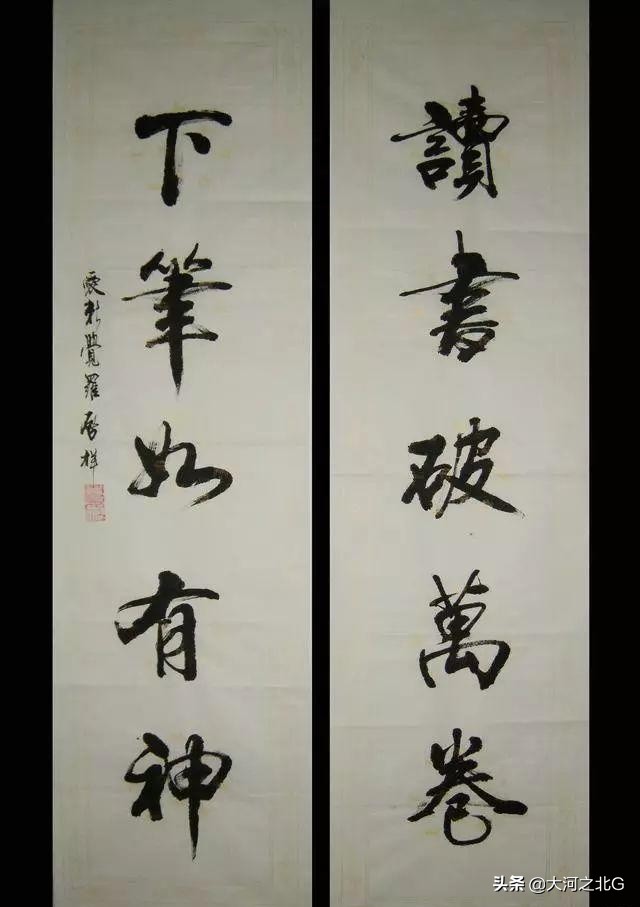 讀書破萬卷
下筆如有神
愛新覺羅啓祥
头条 @大河之北G